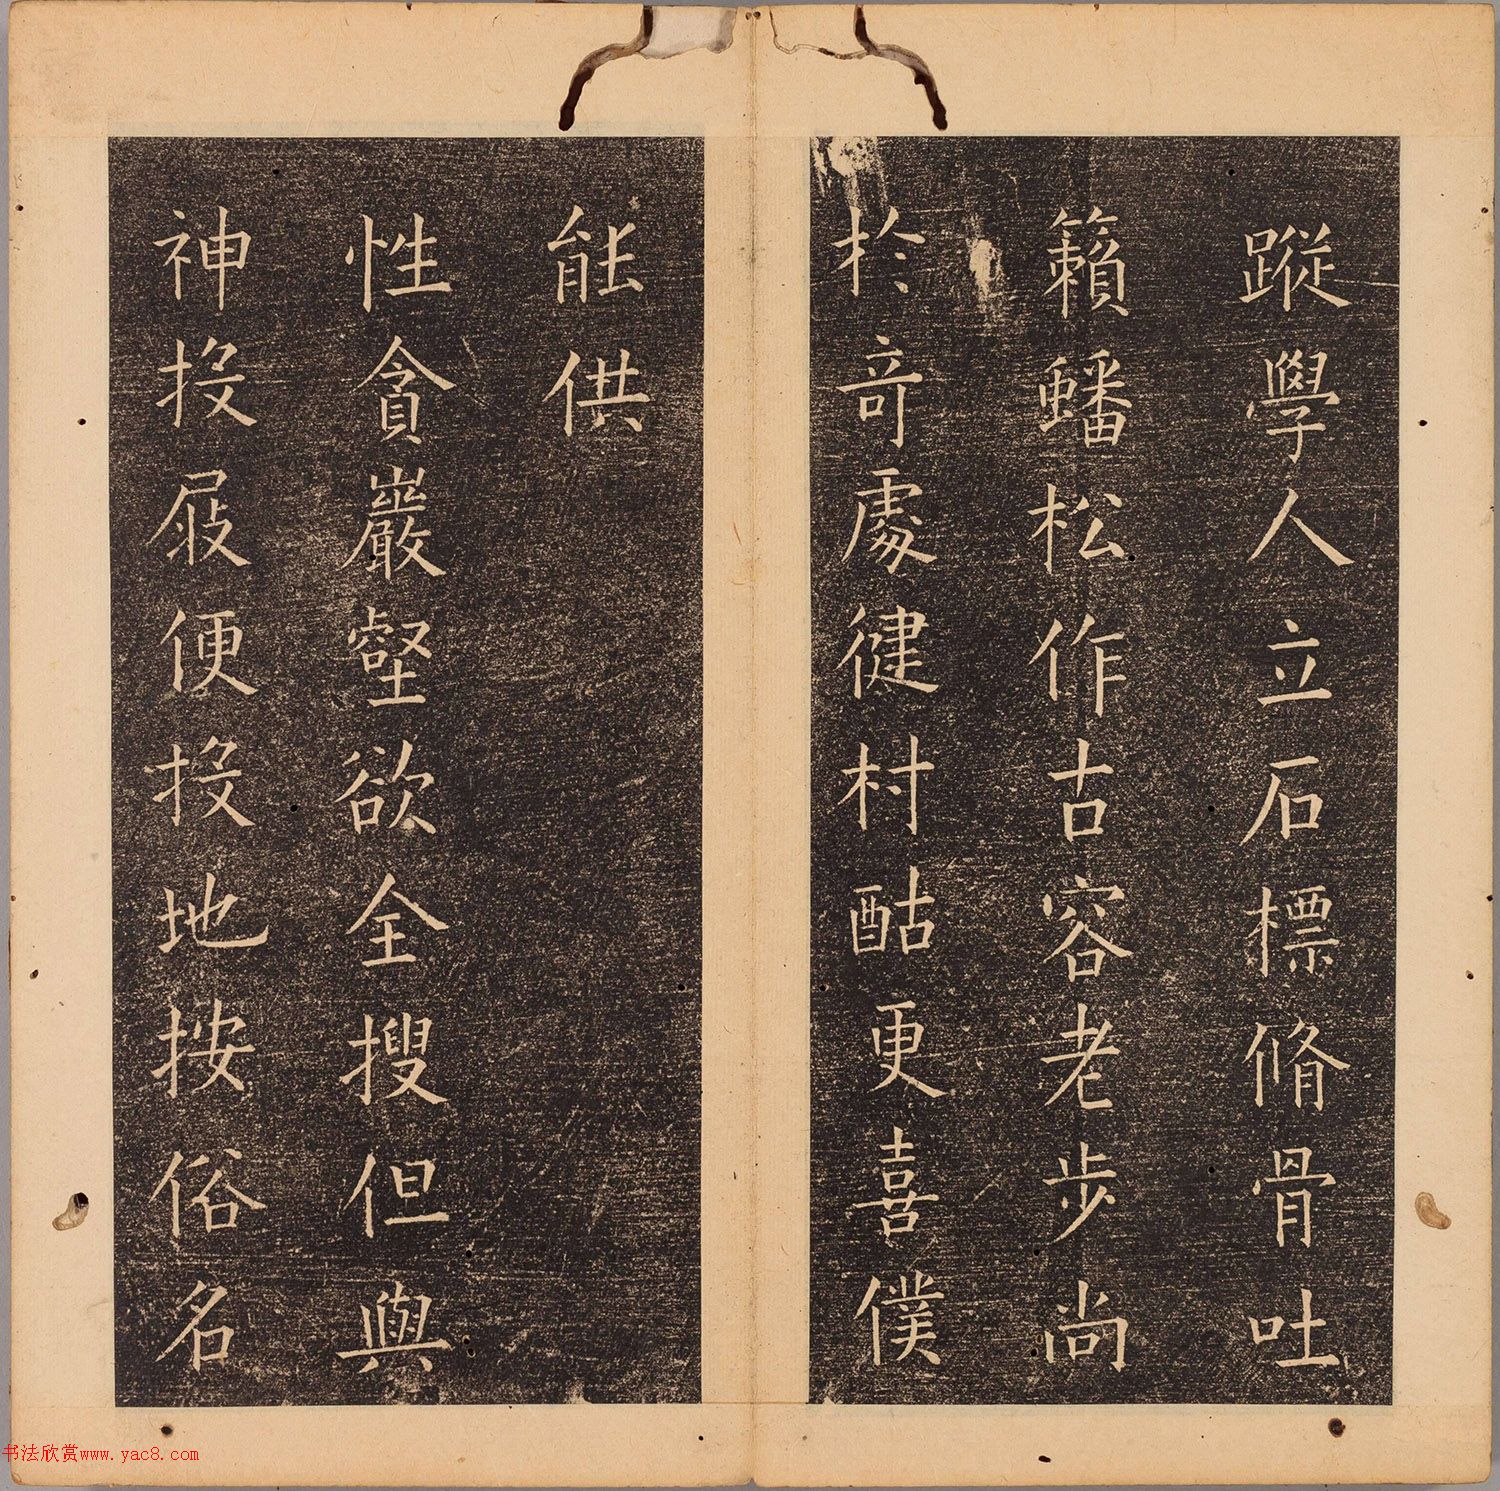 蹤學人立石標脩骨吐
籟蟠松作古容老步尚
於竒處健村酤更喜僕
能供
性貪巖壑欲全搜但與
神投屐便投地按俗名
书法欣赏www.yac8.com